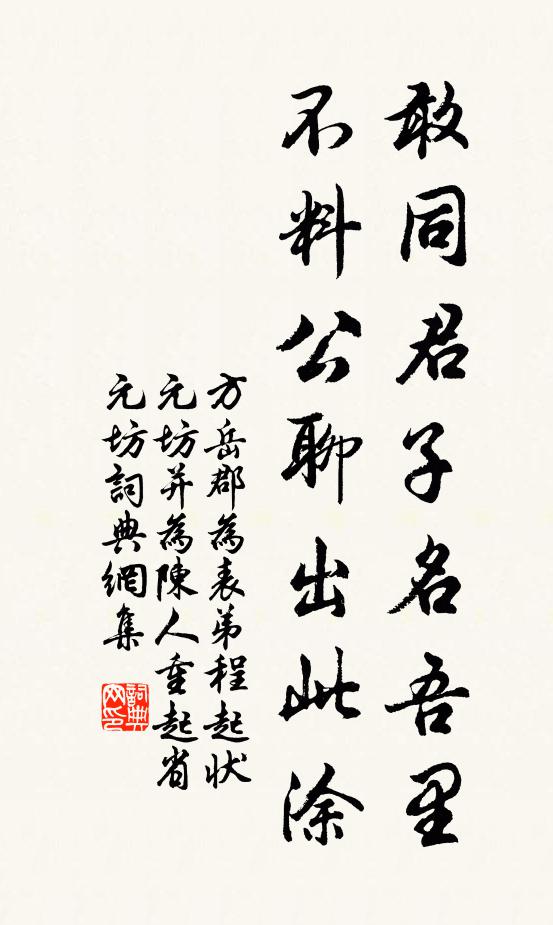 敢同君子名吾里
不料公聊出此涂
方岳郡為表弟程起状
元坊并為陳人重起省
元坊詞典網集
詞典网印